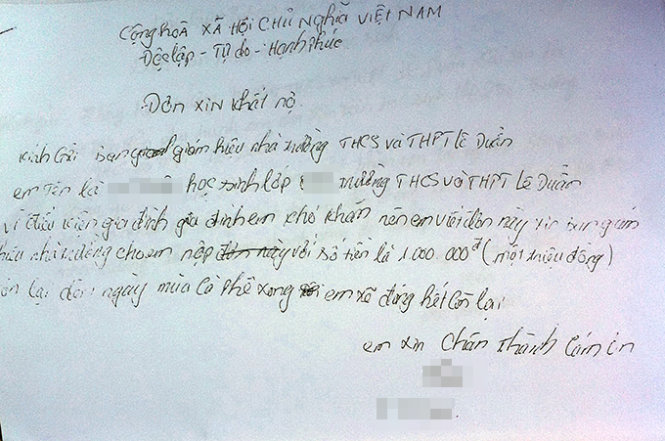 CỘNG HOÀ XÃ HỘI CHỦ NGHĨA VIỆT NAM
Độc lập - Tự do - Hạnh phúc
Đơn xin khất nợ
Kính Gửi ban giám hiệu nhà trường THCS và THPT Lê Duẩn
em Tên là học sinh lớp trường THCS và THPT Lê Duẩn
vì điều kiện gia đình gia đình em khó khăn nên em viết đơn này xin ban giám
hiệu nhà trường cho em nộp đơn này với số tiền là 1.000.000đ (một triệu đồng)
còn lại đến ngày mùa Cà phê xong em xẽ đóng hết Còn lại
em xin Chân thành Cám ơn